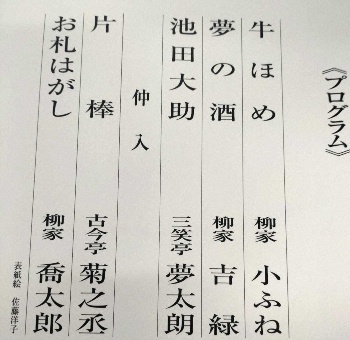 《プログラム》
牛ほめ 柳家 小ふね
夢の酒 柳家 吉緑
池田大助 三笑亭 夢太朗
仲入
片棒 古今亭 菊之丞
お札はがし 柳家 喬太郎
表紙絵 佐藤洋子